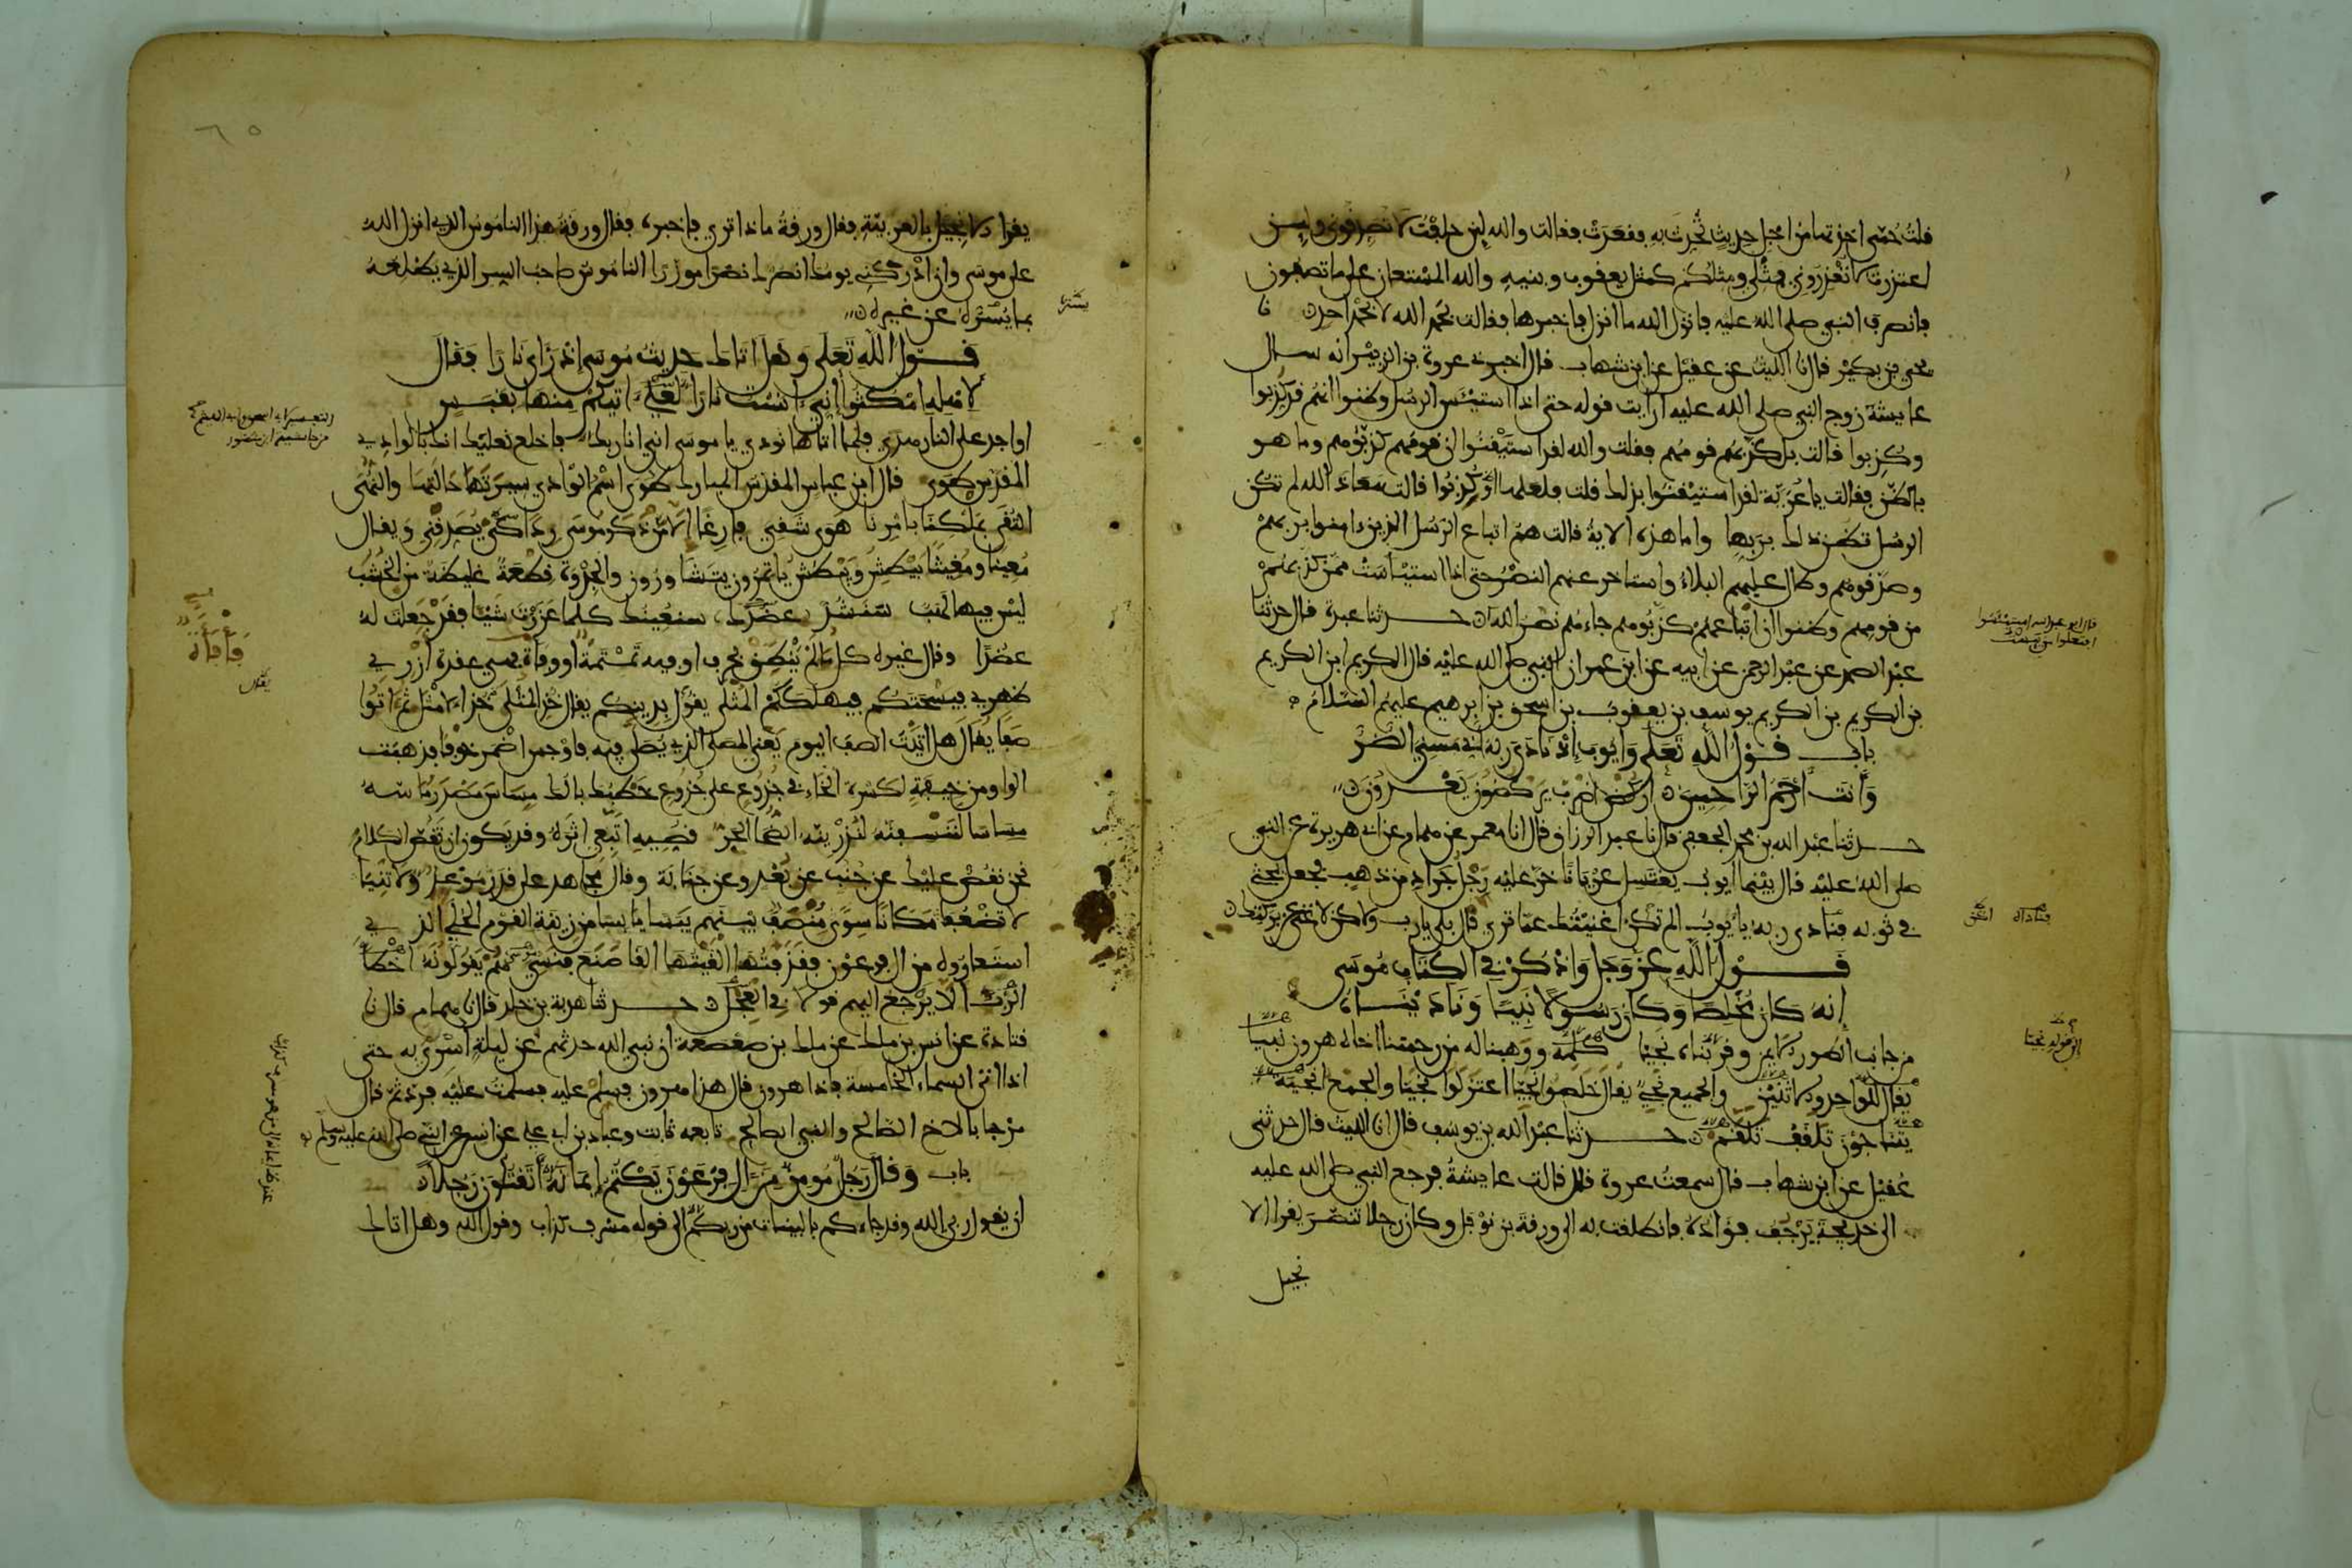 قلت حمى اخذتها من اجل حديث تحدث به فقعدت فقالت والله لين حلفت لا تصدقوني ولين
اعتذرت لا تعذروني فمثلي ومثلكم كمثل يعقوب وبنيه والله المستعان على ما تصفون
فانصرف النبي صلى الله عليه فانزل الله ما انزل فاخبرها فقالت بحمد الله لا بحمد احد نا
يحيى بن بكير قال نا الليث عن عقيل عن ابن شهاب قال اخبرني عروة بن الزبير انه سال
عايشة زوج النبي صلى الله عليه ارايت قوله حتى اذا استيئس الرسل وظنوا انهم قد كذبوا
وكذبوا قالت بل كذبهم قومهم فقلت والله لقد استيقنوا ان قومهم كذبوهم وما هو
بالظن فقالت يا عرية لقد استيقنوا بذلك قلت فلعلها او كذبوا قالت معاذ الله لم تكن
الرسل تظن ذلك بربها واما هذه الاية قالت هم اتباع الرسل الذين امنوا بربهم
وصدقوهم وطال عليهم البلاء واستاخر عنهم النصر حتى اذا استيئست ممن كذبهم
من قومهم وظنوا ان اتباعهم كذبوهم جاءهم نصر الله حدثنا عبدة قال حدثنا
عبد الصمد عن عبد الرحمن عن ابيه عن ابن عمر ان النبي صلى الله عليه قال الكريم ابن الكريم
بن الكريم بن الكريم يوسف بن يعقوب بن اسحق بن ابرهيم عليهم السلام
باب قول الله تعلى وايوب اذ نادى ربه اني مسني الضر
وانت ارحم الراحمين اركض اضرب يركضون يعدون
حدثنا عبد الله بن محمد الجعفي قال نا عبد الرزاق قال انا معمر عن همام عن ابي هريرة عن النبي
صلى الله عليه قال بينما ايوب يغتسل عريانا خر عليه رجل جراد من ذهب فجعل يحثي
في ثوبه فنادى ربه يا ايوب الم تكن اغنيتك عما ترى قال بلى يا رب ولاكن لا غنى عن بركتك
فناداه
قول الله عز وجل واذكر في الكتاب موسى
انه كان مخلصا وكان رسولا نبيا وناديناه
من جانب الطور الايمن وقربناه نجيا كلمه ووهبنا له من رحمتنا اخاه هرون نبيا
الى قوله نجيا
يقال للواحد والاثنين والجميع نجي يقال خلصوا نجيا اعتزلوا نجيا والجمع انجية
يتناجون تلقف تلقم حدثنا عبد الله بن يوسف قال نا الليث قال حدثني
عقيل عن ابن شهاب قال سمعت عروة قال قالت عايشة فرجع النبي صلى الله عليه
الى خديجة يرجف فؤاده فانطلقت به الى ورقة بن نوفل وكان رجلا تنصر يقرا الا
نجيل
٦٥
يقرا الانجيل بالعربية فقال ورقة ماذا ترى فاخبره فقال ورقة هذا الناموس الذي انزل الله
على موسى وان ادركني يومك انصرك نصرا موزرا الناموس صاحب السر الذي يطلعه
بما يستره عن غيره
قول الله تعلى وهل اتاك حديث موسى اذ راى نارا فقال
لاهله امكثوا اني انست نارا لعلي اتيكم منها بقبس
او اجد على النار هدى فلما اتاها نودي يا موسى اني انا ربك فاخلع نعليك انك بالوادي
المقدس طوى قال ابن عباس المقدس المبارك طوى اسم الوادي سيرتها حالتها والنهى
التقى بملكنا بامرنا هوى شقي فارغا الا من ذكر موسى ردا كي يصدقني ويقال
معينا ومغيثا يبطش ويبطش ياتمرون يتشاورون والجذوة قطعة غليظة من الخشب
ليس فيها لهب سنشد عضدك سنعينك كلما عززت شيئا فقد جعلت له
عضدا وقال غيره كل ما لم ينطق بحرف او فيه تمتمة او فافاة فهي عقدة ازري
فافاة
ظهري فيسحتكم فيهلككم المثلى يقول بدينكم يقال خذ المثلى خذ الامثل ثم اتوا
صفا يقال هل اتيت الصف اليوم يعني المصلى الذي يصلى فيه فاوجس اضمر خوفا فذهبت
الواو من خيفة لكسرة الخاء في جذوع على جذوع خطبك بالك مساس مصدر ماسه
مساسا لننسفنه لنذرينه الضحا الحر قصيه اتبعي اثره وقد يكون ان تقص الكلام
نحن نقص عليك عن جنب عن بعد وعن جنابة وقال مجاهد على قدر موعد ولا تنيا
لا تضعفا مكانا سوى منصف بينهم يبسا يابسا من زينة القوم الحلي الذي
استعاروه من ال فرعون فقذفتها القيتها القا صنع فنسي هم يقولونه اخطا
الرب الا يرجع اليهم قولا في العجل حدثنا هدبة بن خلد قال نا همام قال نا
قتادة عن انس بن ملك عن ملك بن صعصعة ان نبي الله حدثهم عن ليلة اسري به حتى
اذا اتى السماء الخامسة فاذا هرون قال هذا هرون فسلم عليه فسلمت عليه فرد ثم قال
مرحبا بالاخ الصالح والنبي الصالح تابعه ثابت وعباد بن ابي علي عن انس عن النبي صلى الله عليه وسلم
باب وقال رجل مومن من ال فرعون يكتم ايمانه اتقتلون رجلا
ان يقول ربي الله وقد جاءكم بالبينات من ربكم الى قوله مسرف كذاب وقول الله وهل اتاك